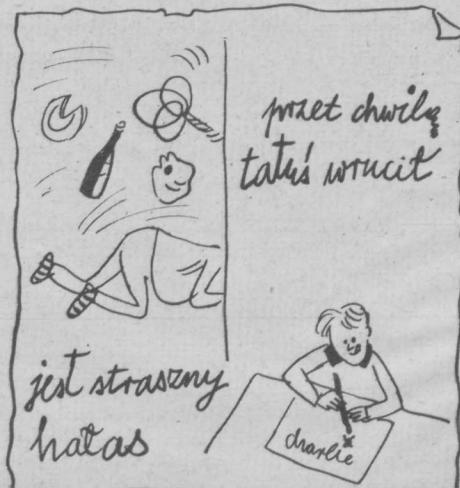 przet chwilą
tatuś wrucił
jest straszny
hałas
charlie